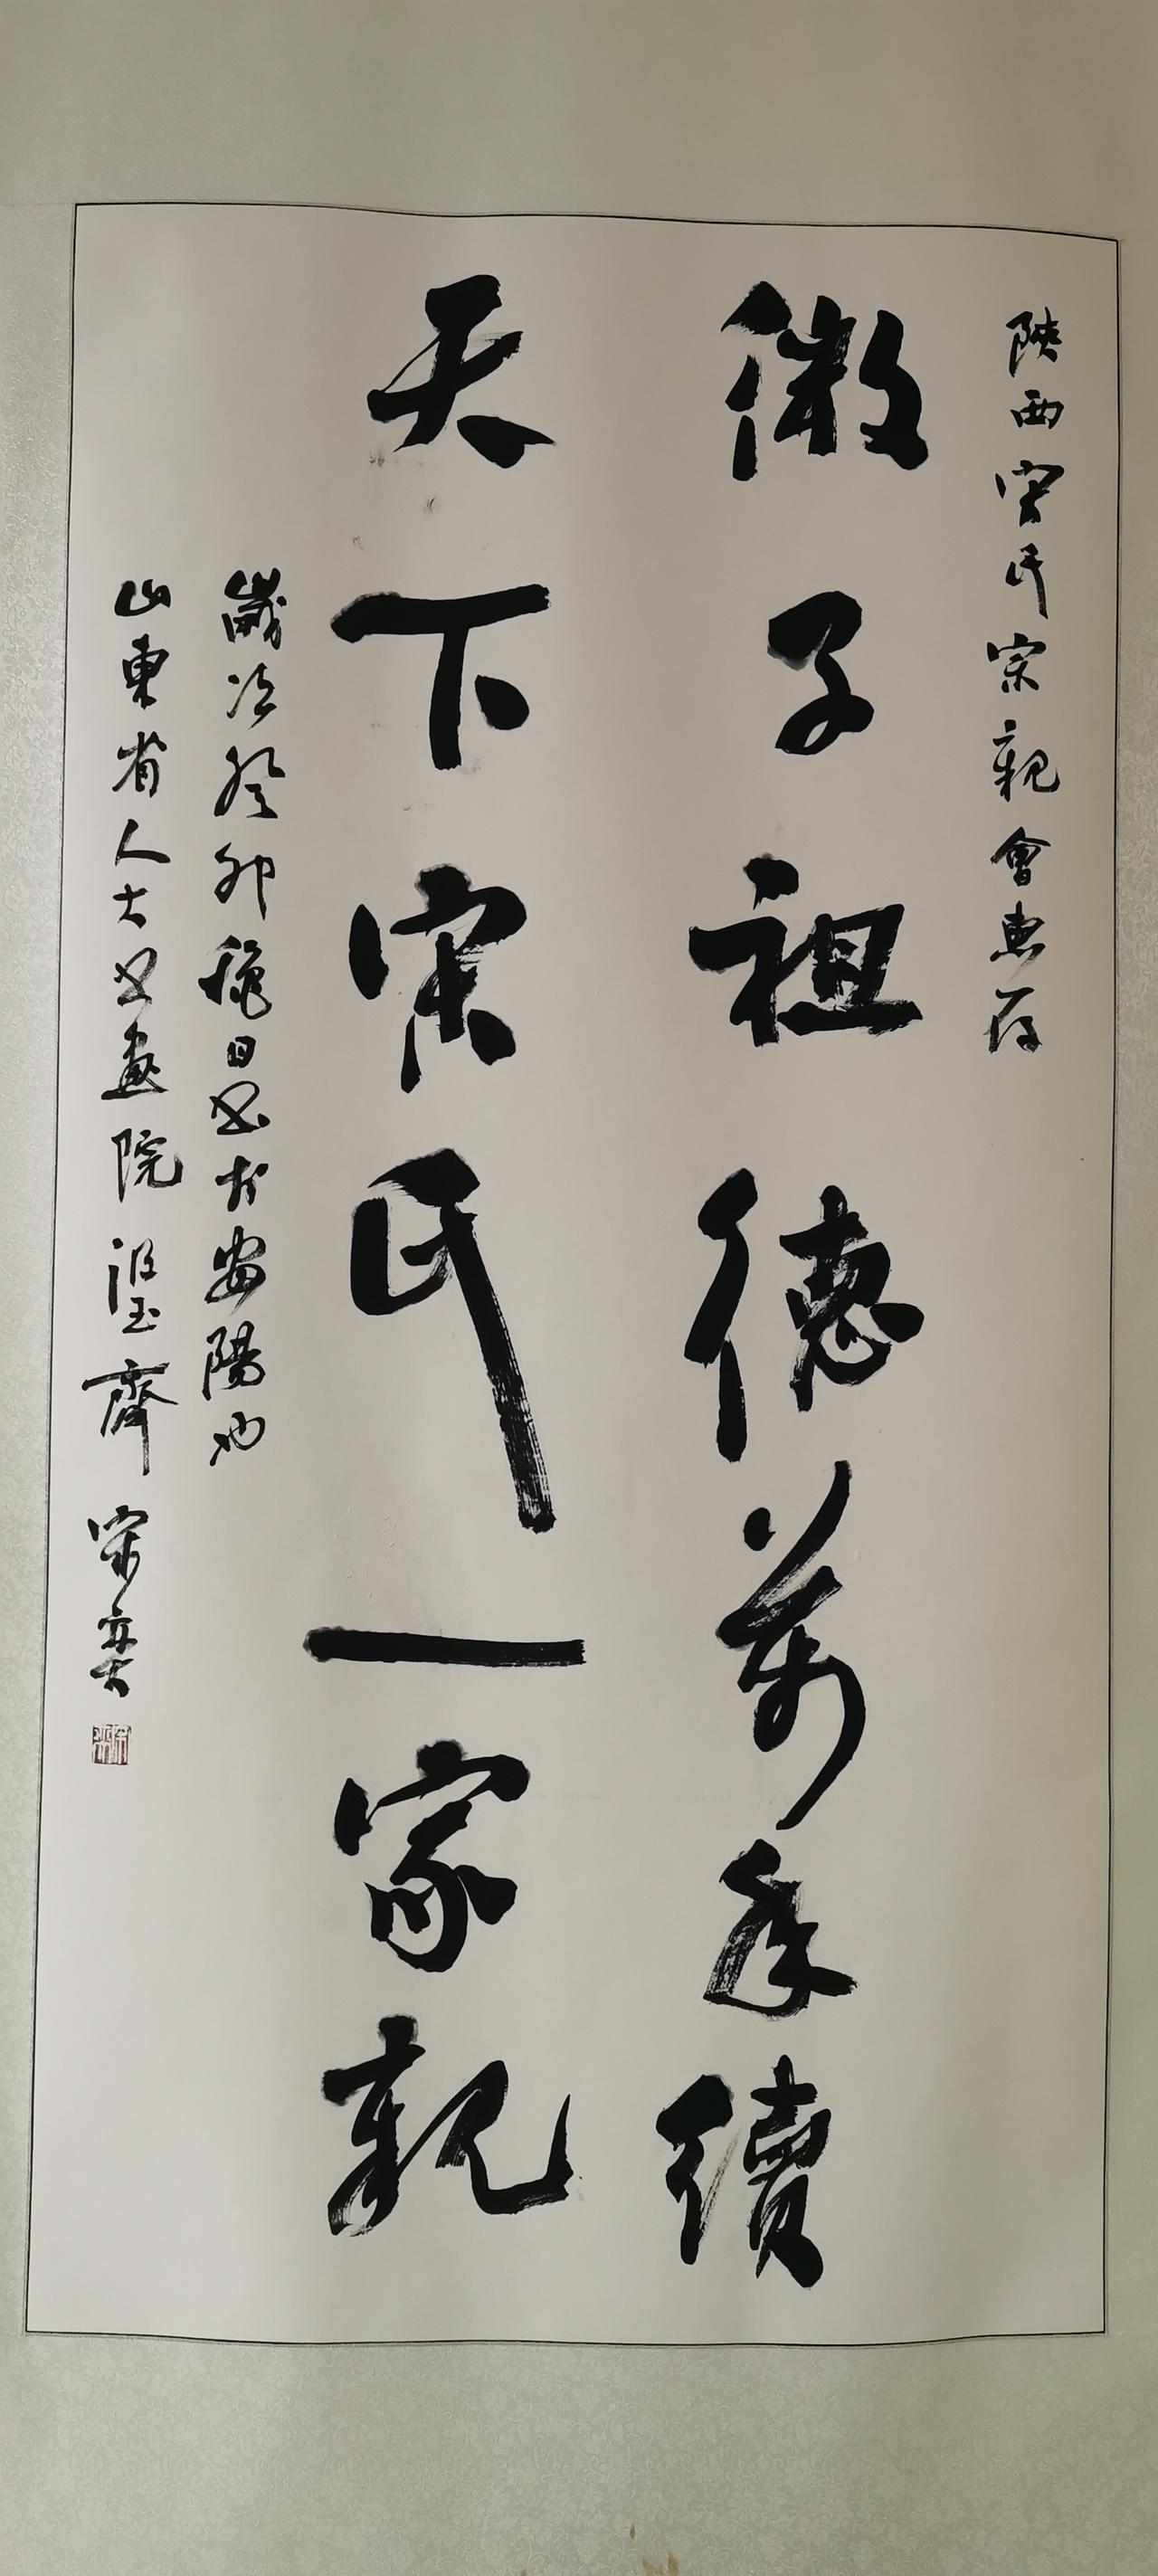 陝西宋氏宗親會惠存
微子祖德萬年續
天下宋氏一家親
歲次癸卯秋日書於安陽也
山東省人大書畫院 齋 宋奕